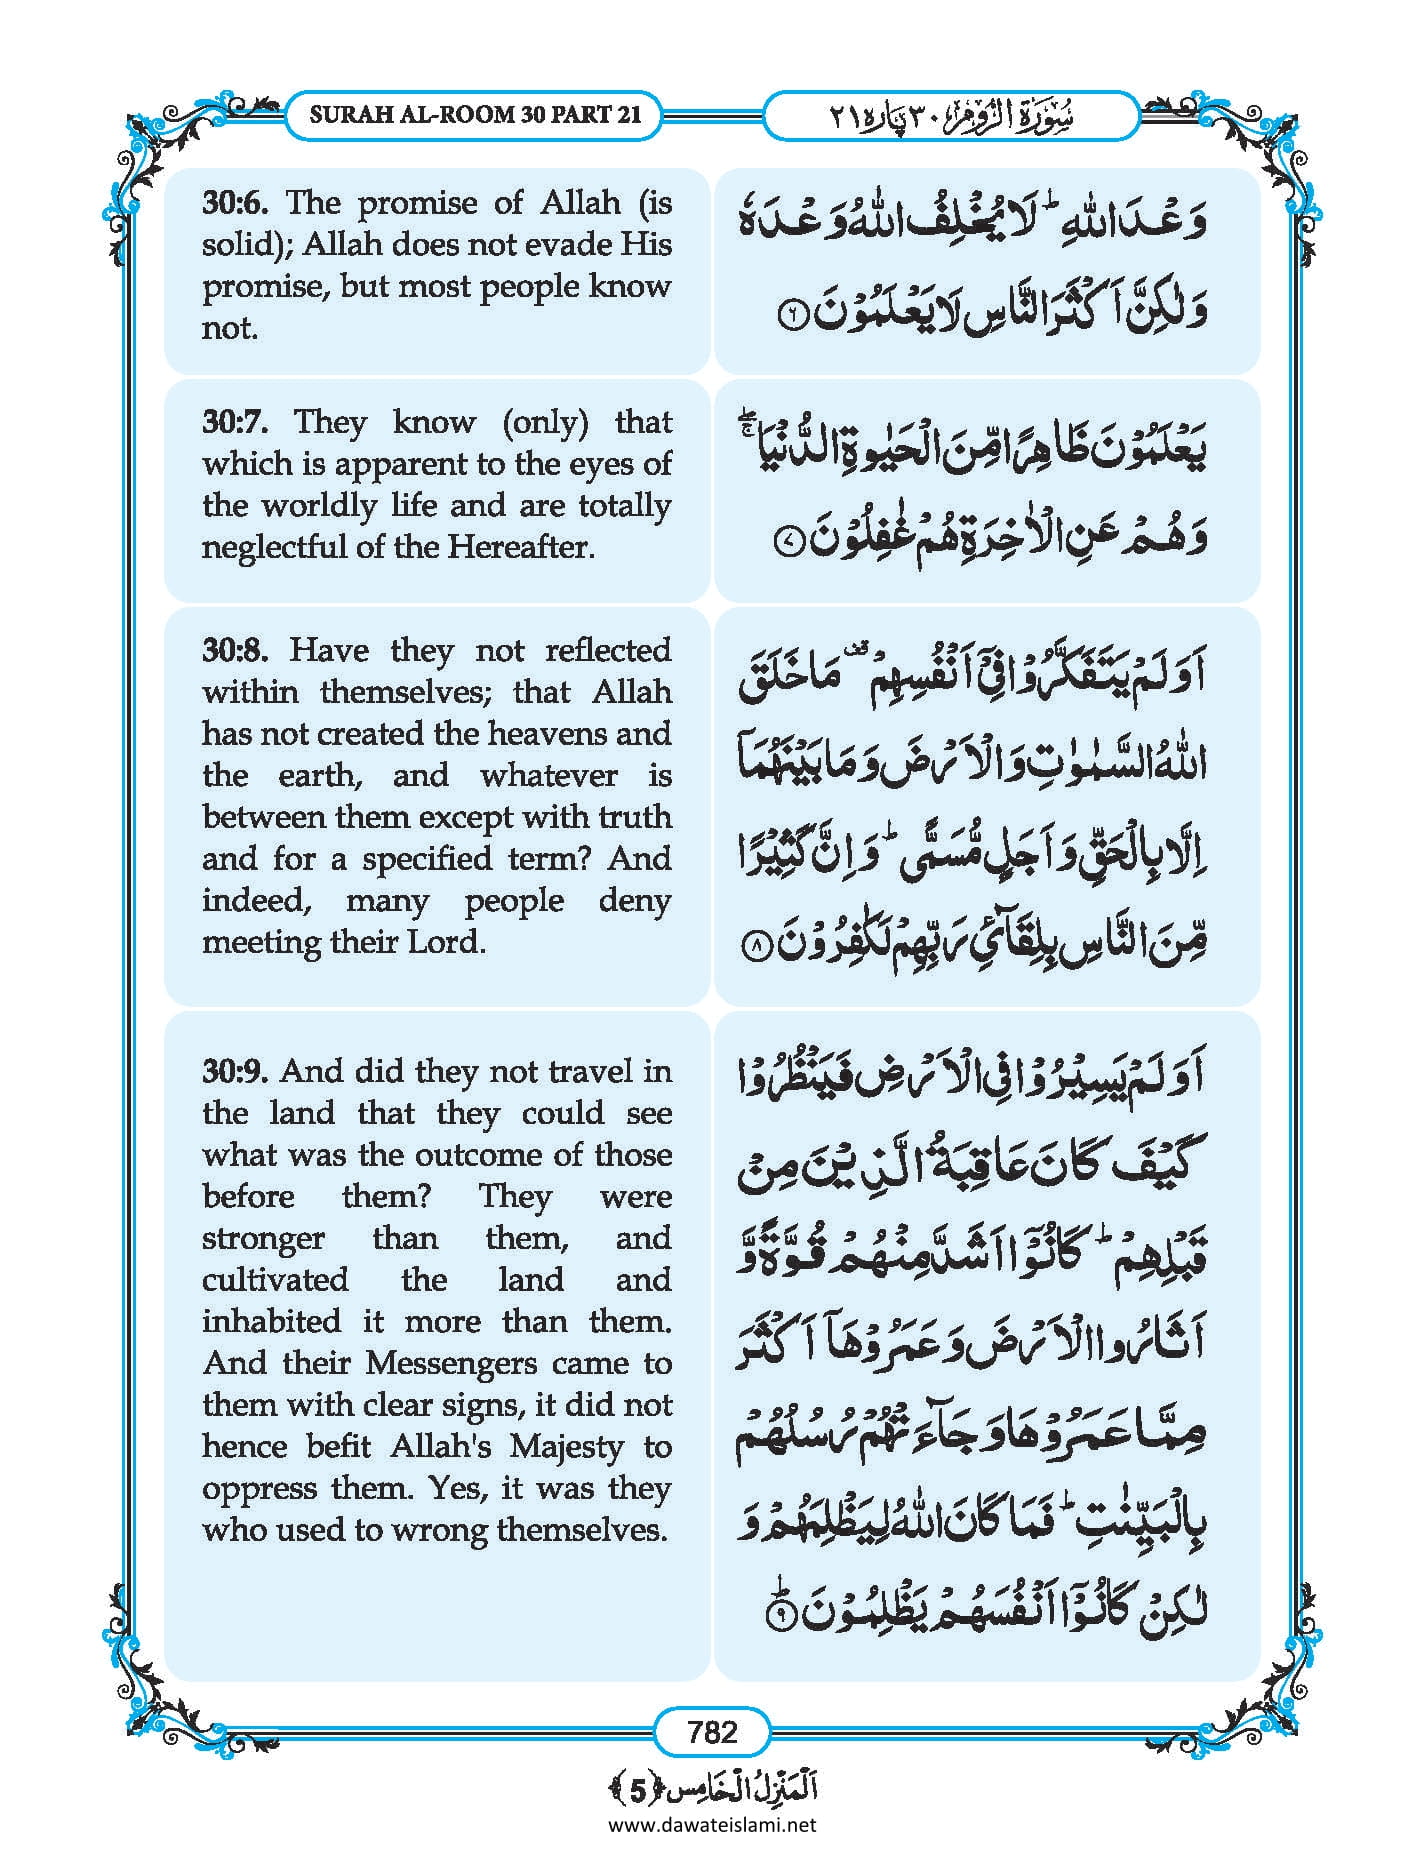 SURAH AL-ROOM 30 PART 21
سُوْرَةُ الرُّوْمِ ٣٠ پاره ٢١
30:6. The promise of Allah (is
solid); Allah does not evade His
promise, but most people know
not.
وَعْدَ اللّٰهِ ؕ لَا یُخْلِفُ اللّٰهُ وَعْدَهٗ
وَلٰكِنَّ اَكْثَرَ النَّاسِ لَا یَعْلَمُوْنَ ﴿۶﴾
30:7. They know (only) that
which is apparent to the eyes of
the worldly life and are totally
neglectful of the Hereafter.
یَعْلَمُوْنَ ظَاهِرًا مِّنَ الْحَیٰوةِ الدُّنْیَا ۚۖ
وَهُمْ عَنِ الْاٰخِرَةِ هُمْ غٰفِلُوْنَ ﴿۷﴾
30:8. Have they not reflected
within themselves; that Allah
has not created the heavens and
the earth, and whatever is
between them except with truth
and for a specified term? And
indeed, many people deny
meeting their Lord.
اَوَلَمْ یَتَفَكَّرُوْا فِیْۤ اَنْفُسِهِمْ ۟ مَا خَلَقَ
اللّٰهُ السَّمٰوٰتِ وَالْاَرْضَ وَمَا بَیْنَهُمَاۤ
اِلَّا بِالْحَقِّ وَاَجَلٍ مُّسَمًّی ؕ وَاِنَّ كَثِیْرًا
مِّنَ النَّاسِ بِلِقَآئِ رَبِّهِمْ لَكٰفِرُوْنَ ﴿۸﴾
30:9. And did they not travel in
the land that they could see
what was the outcome of those
before them? They were
stronger than them, and
cultivated the land and
inhabited it more than them.
And their Messengers came to
them with clear signs, it did not
hence befit Allah's Majesty to
oppress them. Yes, it was they
who used to wrong themselves.
اَوَلَمْ یَسِیْرُوْا فِی الْاَرْضِ فَیَنْظُرُوْا
كَیْفَ كَانَ عَاقِبَةُ الَّذِیْنَ مِنْ
قَبْلِهِمْ ؕ كَانُوْۤا اَشَدَّ مِنْهُمْ قُوَّةً وَّ
اَثَارُوا الْاَرْضَ وَعَمَرُوْهَاۤ اَكْثَرَ
مِمَّا عَمَرُوْهَا وَجَآءَتْهُمْ رُسُلُهُمْ
بِالْبَیِّنٰتِ ؕ فَمَا كَانَ اللّٰهُ لِیَظْلِمَهُمْ وَ
لٰكِنْ كَانُوْۤا اَنْفُسَهُمْ یَظْلِمُوْنَ ﴿ؕ۹﴾
782
اَلْمَنْزِلُ الْخَامِس ﴿5﴾
www.dawateislami.net